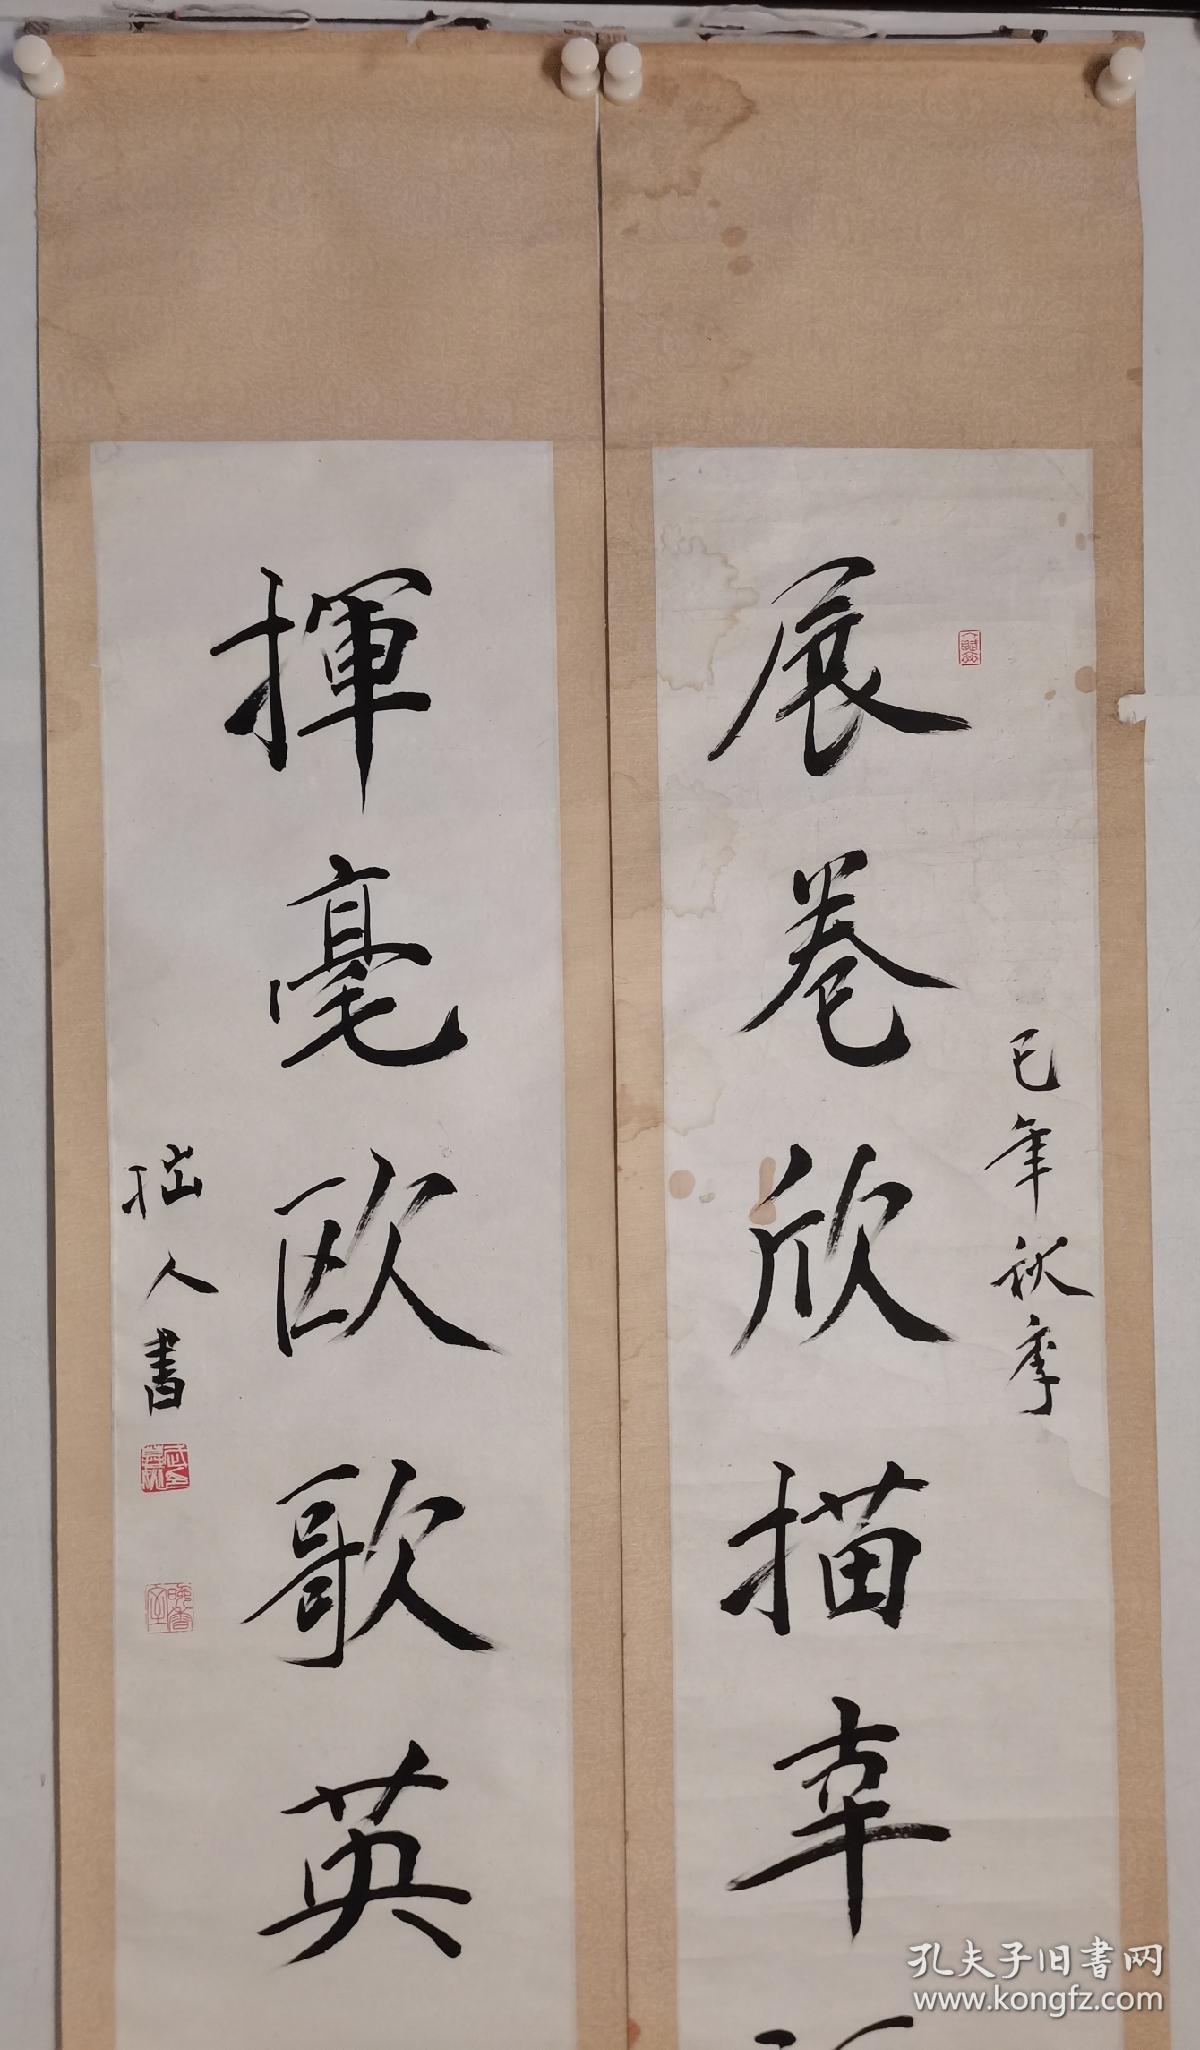 展卷欣描幸
己年秋季
揮毫欧歌英
拙人書
孔夫子旧書网
www.kongfz.com